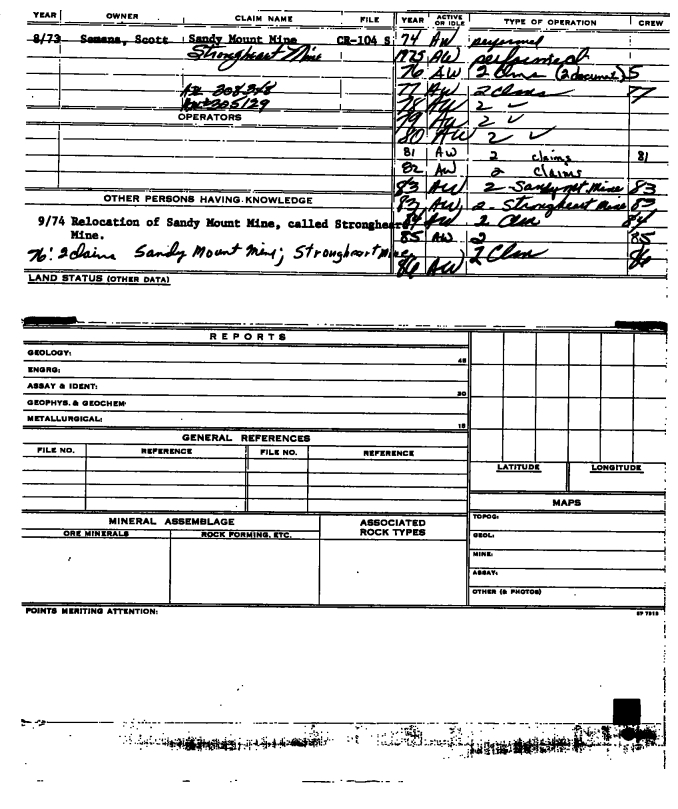 YEAR OWNER CLAIM NAME FILE YEAR ACTIVE OR IDLE TYPE OF OPERATION CREW
8/73 Semans, Scott Sandy Mount Mine CR-104 S 74 AW performed
Strongheart Mine 1975 AW performed
76 AW 2 Clms (2 document) 5
308368 77 AW 2 Clms 77
305129 78 AW 2 ✓
OPERATORS 79 AW 2 ✓
80 AW 2 ✓
81 AW 2 claims 81
82 AW 2 claims
83 AW 2 - Sandy mt Mine 83
OTHER PERSONS HAVING KNOWLEDGE 83 AW 2 - Strongheart Mine 83
9/74 Relocation of Sandy Mount Mine, called Strongheart 84 AW 2 Clm 84
Mine. 85 AW 2 85
76: 2 claims Sandy Mount Mine; Strongheart Mine 86 AW 2 Clm 86
LAND STATUS (OTHER DATA)
REPORTS
GEOLOGY: 45
ENGRG:
ASSAY & IDENT: 30
GEOPHYS. & GEOCHEM:
METALLURGICAL: 15
GENERAL REFERENCES
FILE NO. REFERENCE FILE NO. REFERENCE
LATITUDE LONGITUDE
MAPS
MINERAL ASSEMBLAGE ASSOCIATED ROCK TYPES TOPOG:
ORE MINERALS ROCK FORMING, ETC. GEOL:
MINE:
ASSAY:
OTHER (& PHOTOS)
POINTS MERITING ATTENTION: